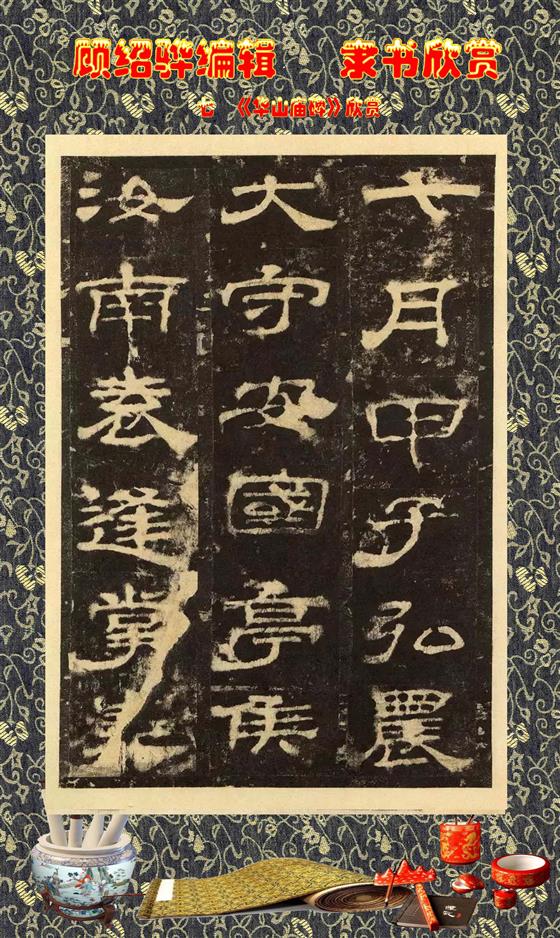 顾绍骅编辑 隶书欣赏
《华山庙碑》欣赏
七月甲子弘農
大守安國亭侯
汝南袁逢掌